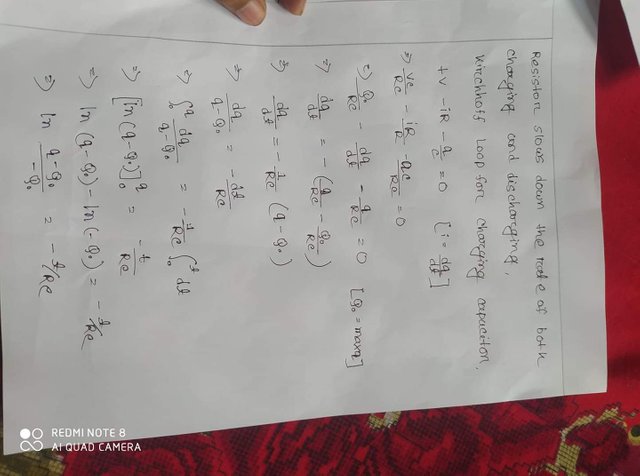 Resistor slows down the rate of both
charging and discharging.
Kirchhoff Loop for charging capacitor.
+v - iR - q/c = 0 [i = dq/dt]
⇒ vc/Rc - iR/R - qc/Rc = 0
⇒ Q₀/Rc - dq/dt - q/Rc = 0 [Q₀ = max q]
⇒ dq/dt = - (q/Rc - Q₀/Rc)
⇒ dq/dt = - 1/Rc (q - Q₀)
⇒ dq/q-Q₀ = - dt/Rc
⇒ ∫₀^q dq/q-Q₀ = - 1/Rc ∫₀^t dt
⇒ [ln (q-Q₀)]₀^q = - t/Rc
⇒ ln (q-Q₀) - ln (-Q₀) = - t/Rc
⇒ ln q-Q₀/-Q₀ = - t/Rc
REDMI NOTE 8
AI QUAD CAMERA